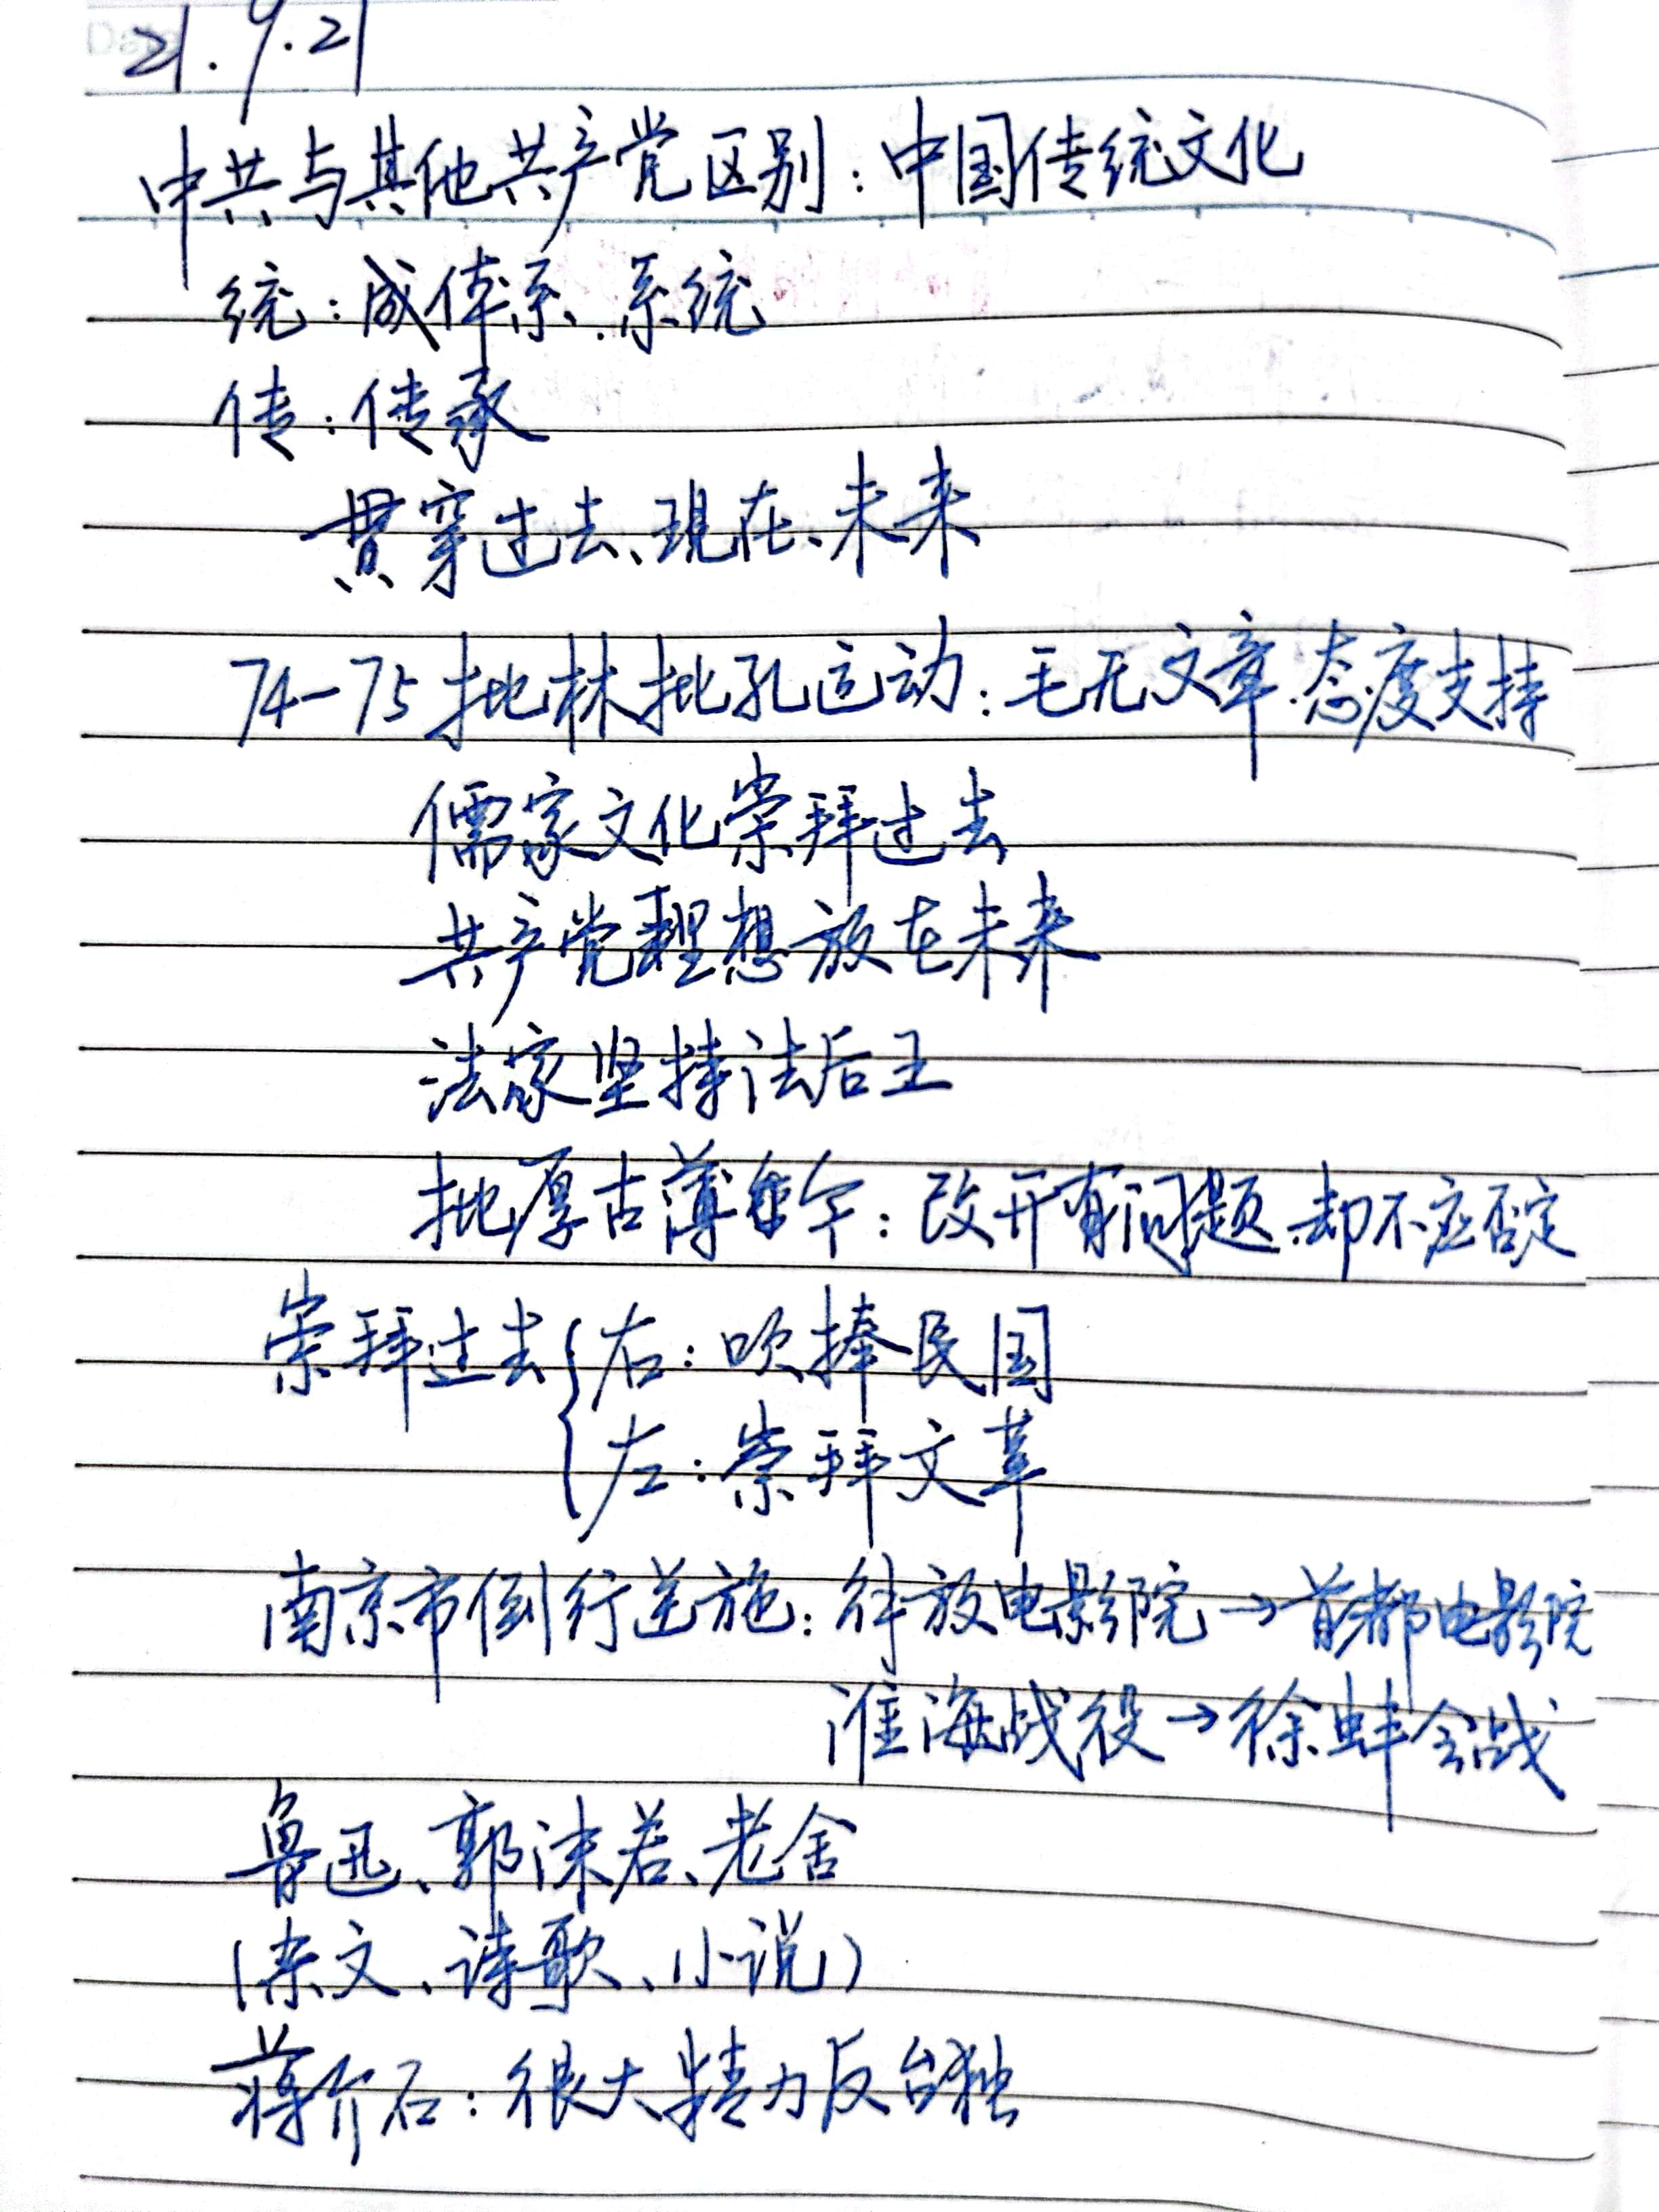 Date
21.9.21
中共与其他共产党区别：中国传统文化
统：成体系、系统
传：传承
贯穿过去、现在、未来
74-75批林批孔运动：毛无文章、态度支持
儒家文化崇拜过去
共产党理想放在未来
法家坚持法后王
批厚古薄今：改开有问题、却不应否定
崇拜过去{右：吹捧民国
左：崇拜文革
南京市倒行逆施：解放电影院→首都电影院
淮海战役→徐蚌会战
鲁迅、郭沫若、老舍
（杂文、诗歌、小说）
蒋介石：很大精力反台独